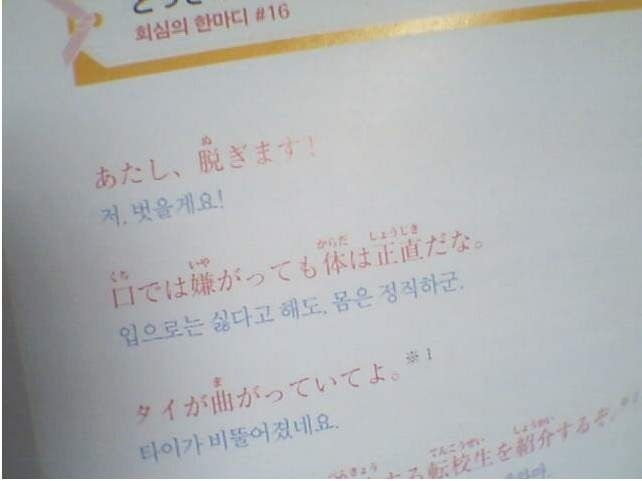 회심의 한마디 #16
あたし、脱ぎます!
저, 벗을게요!
口では嫌がっても体は正直だな。
입으로는 싫다고 해도, 몸은 정직하군.
タイが曲がっていてよ。※1
타이가 비뚤어졌네요.
転校生を紹介する